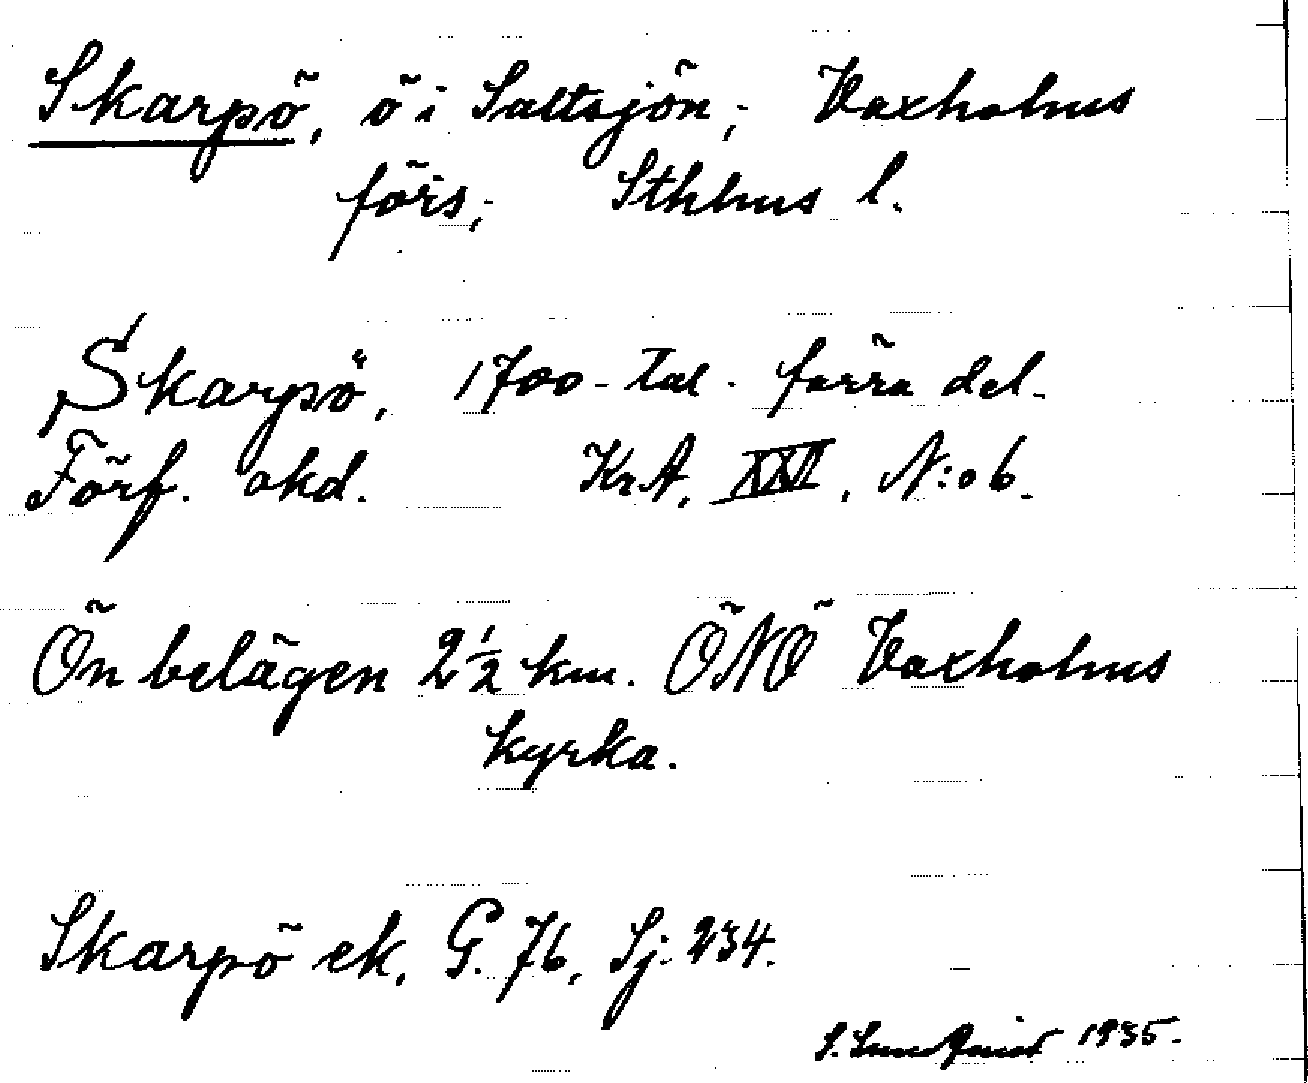 Skarpö, ö i Saltsjön; Vaxholms
förs; Sthlms l.
Skarpö, 1700-tal. förra del.
Förf. okd. KrA, XXII, N:o 6.
Ön belägen 2½ km. ÖNÖ Vaxholms
kyrka.
Skarpö ek, G. 76, Sj. 234.
S. 1935.